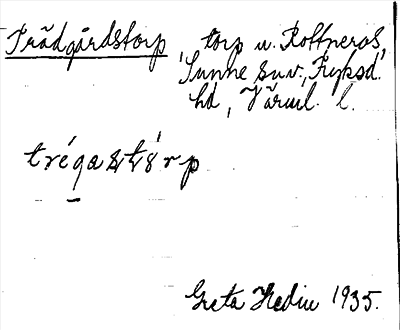 Trädgårdstorp, torp u. Rottneros,
Sunne sn., Fryksd.
hd, Värml. l.
Greta Hedin 1935.